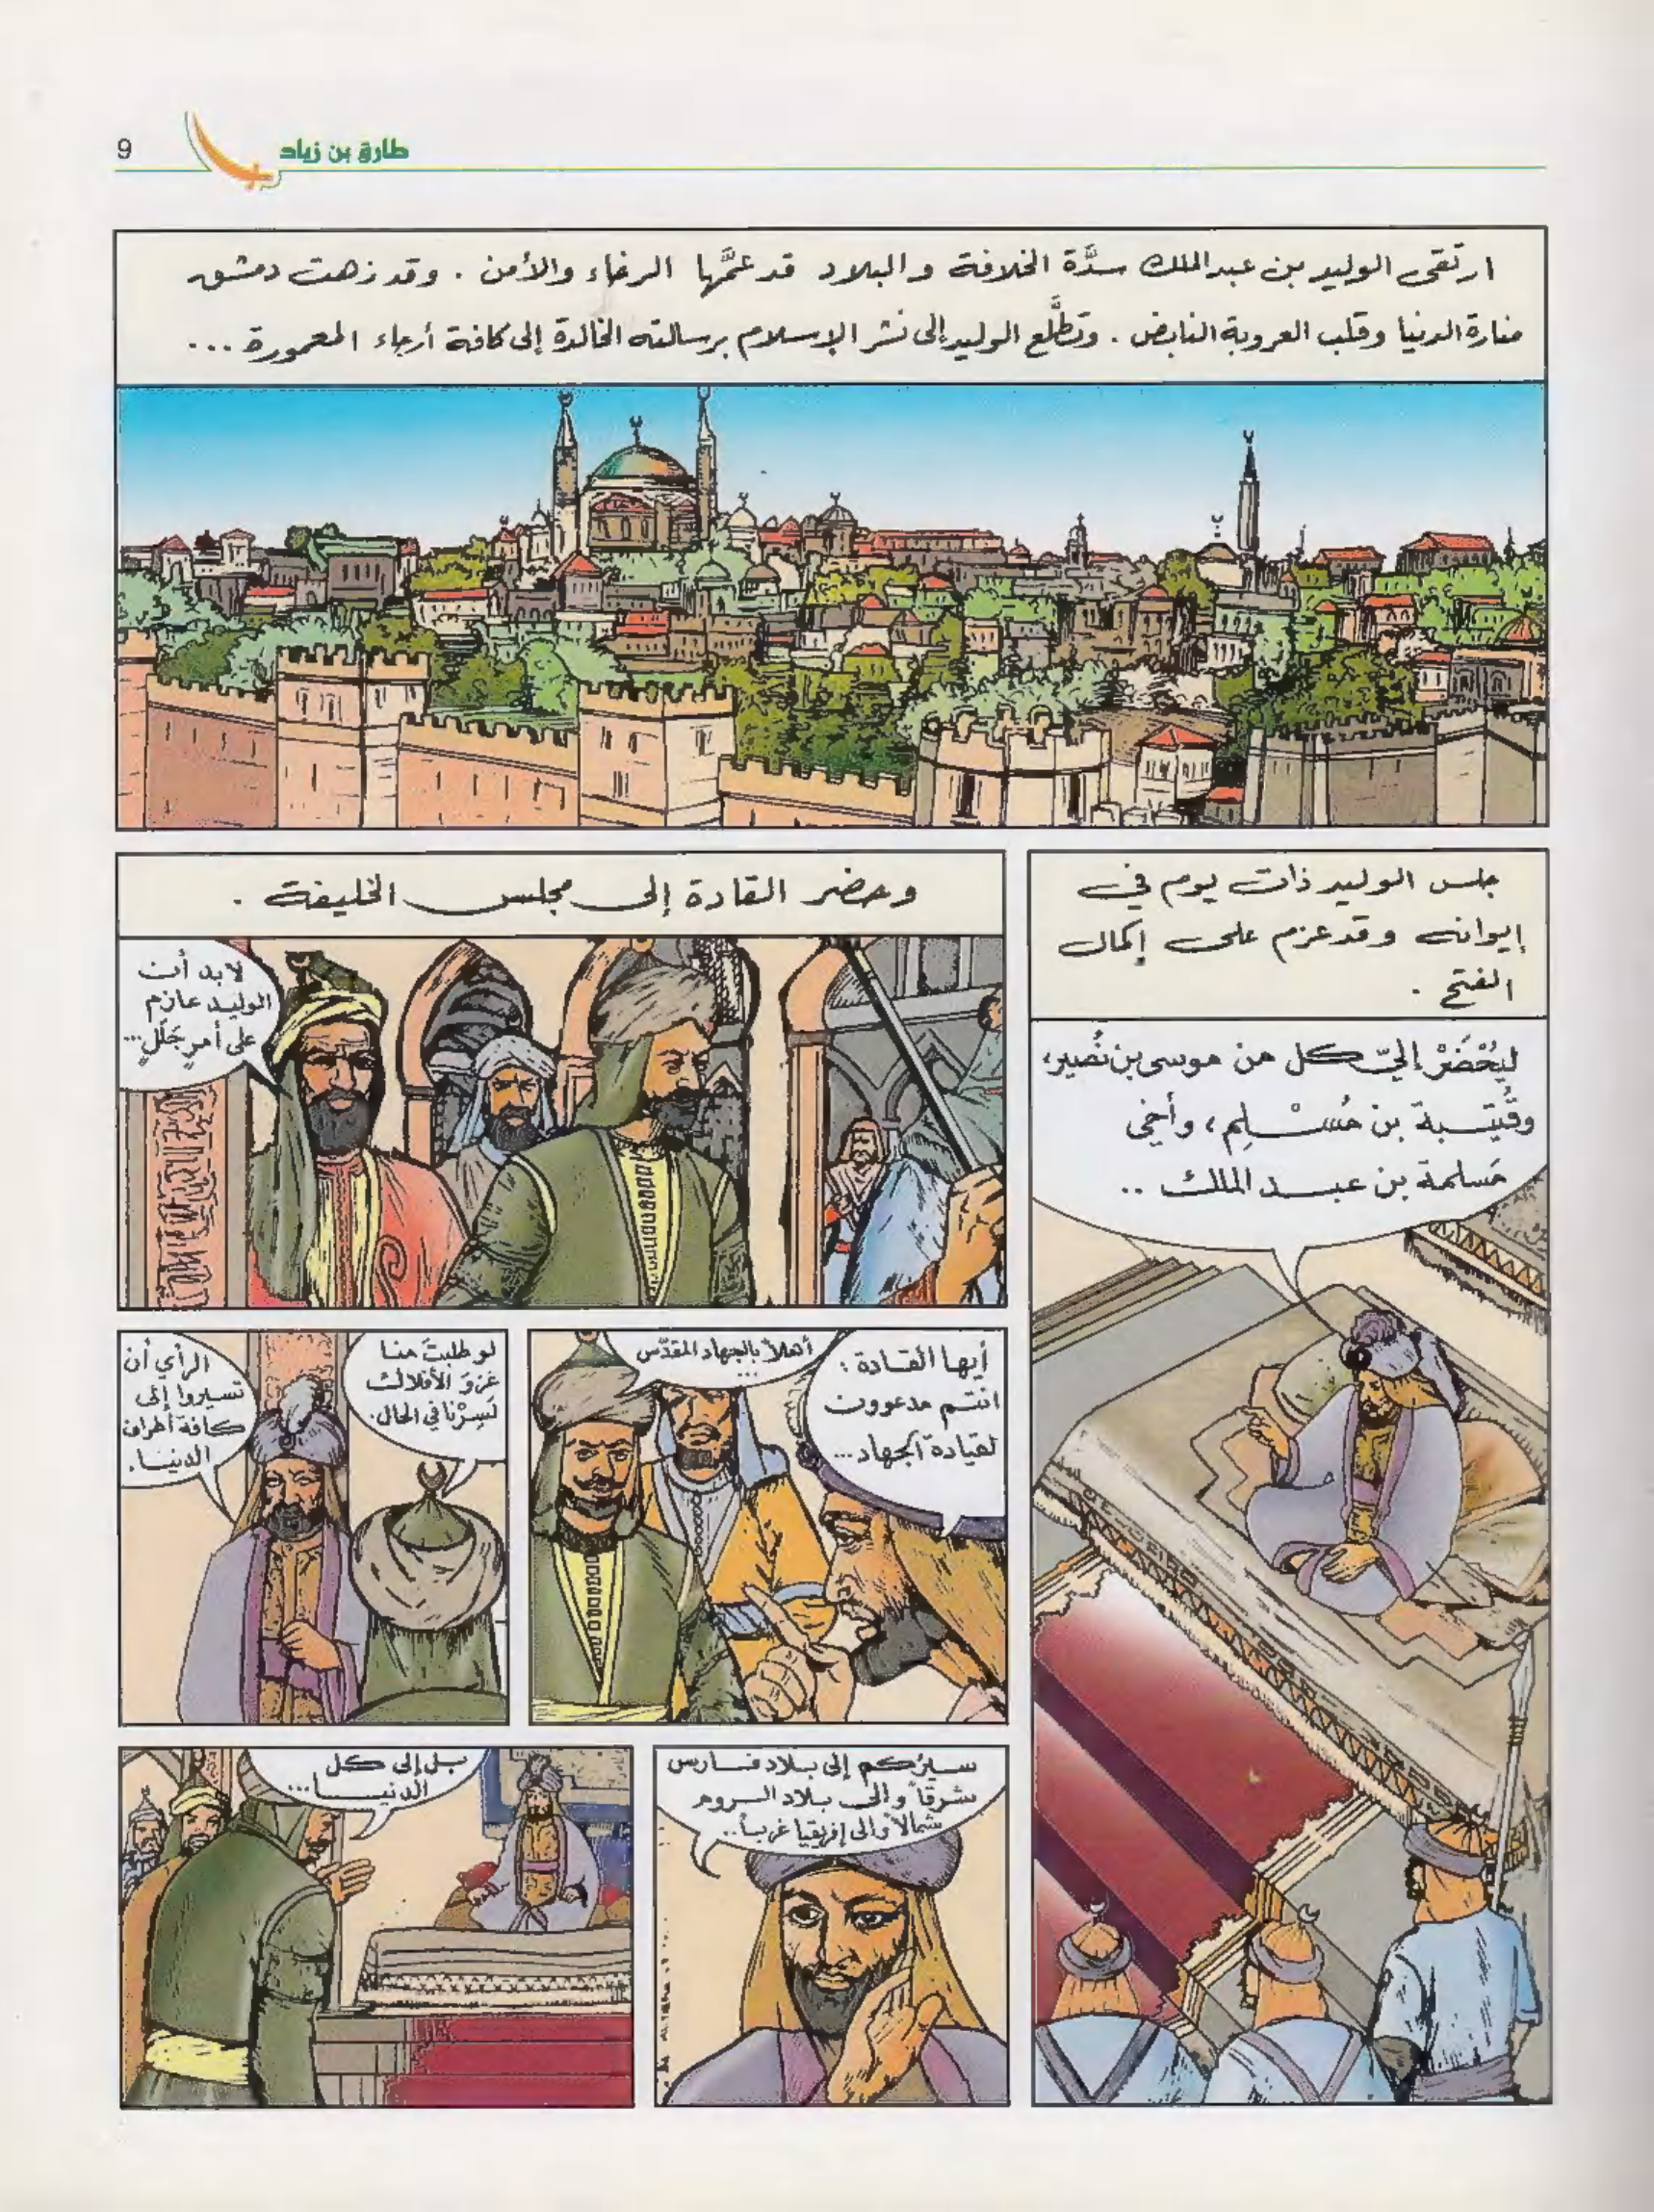 طارق بن زياد
9
ارتقى الوليد بن عبد الملك سدَّة الخلافة والبلاد قد عمَّها الرخاء والأمن . وقد زهت دمشق
منارة الدنيا وقلب العروبة النابض . وتطلَّع الوليد إلى نشر الإسلام برسالته الخالدة إلى كافة أرجاء المعمورة ...
جلس الوليد ذات يوم في
إيوانه وقد عزم على إكمال
الفتح .
ليُحْضَرْ إليّ كل من موسى بن نُصير،
وقُتيبة بن مُسْلِم، وأخي
مَسلمة بن عبد الملك ..
وحضر القادة إلى مجلس الخليفة .
لابد أن
الوليد عازم
على أمرٍ جَلَلٍ...
أيها القادة :
انتم مدعوون
لقيادة الجهاد...
أهلاً بالجهاد المقدَّس
...
لو طلبتَ منا
غزوَ الأفلاك
لَسِرْنا في الحال.
الرأي أن
تسيروا إلى
كافة أطراف
الدنيا.
سيرُكم إلى بلاد فارس
شرقاً وإلى بلاد الروم
شمالاً وإلى إفريقيا غرباً..
بل إلى كل
الدنيا...